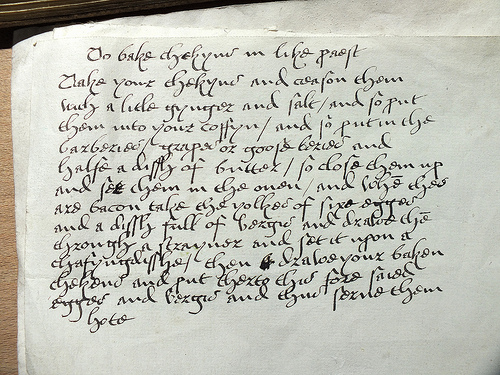 To bake chekyns in like paest
Take your chekyns and ceason them
with a litle gynger and salt / and so put
them into your coffyn / and so put in the
barberies / grapes or goose beries and
halfe a dissh of butter / so close them up
and set them in the ouen / and whē they
are bacon take the yolkes of sixe egges
and a dissh full of vergis and drawe thē
through a strayner and set it upon a
chafyngdisshe / then drawe your baken
chekens and put therto this fore saied
egges and vergis and thus serue them
hote